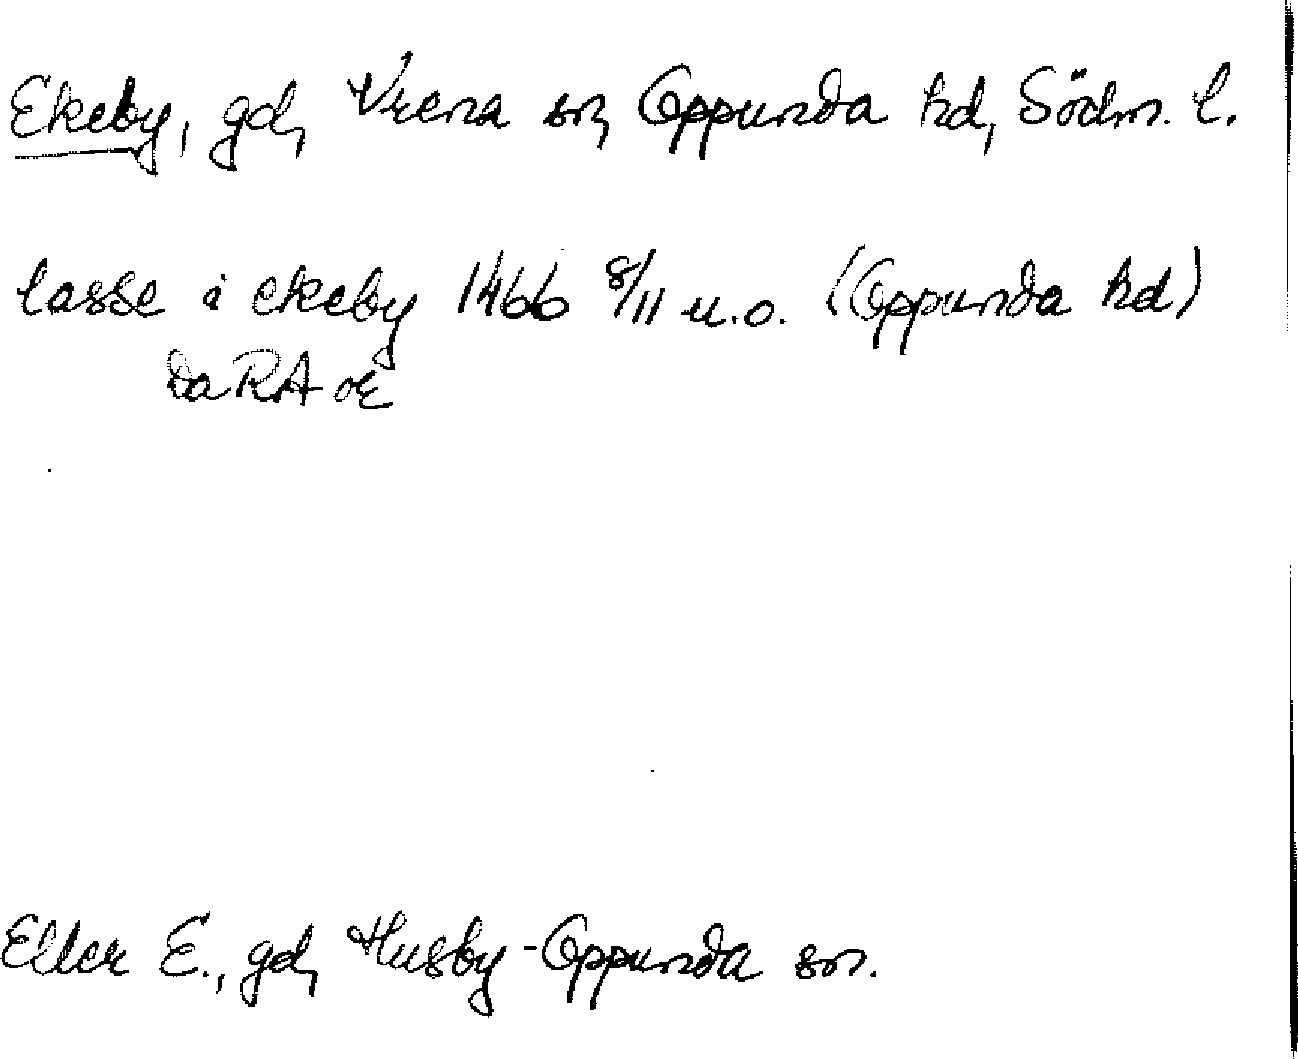 Ekeby, gd, Vrena sn, Oppunda hd, Södm. l.
lasse i ekeby 1466 8/11 u.o. (Oppunda hd)
Da RA or
Eller E., gd, Husby-Oppunda sn.